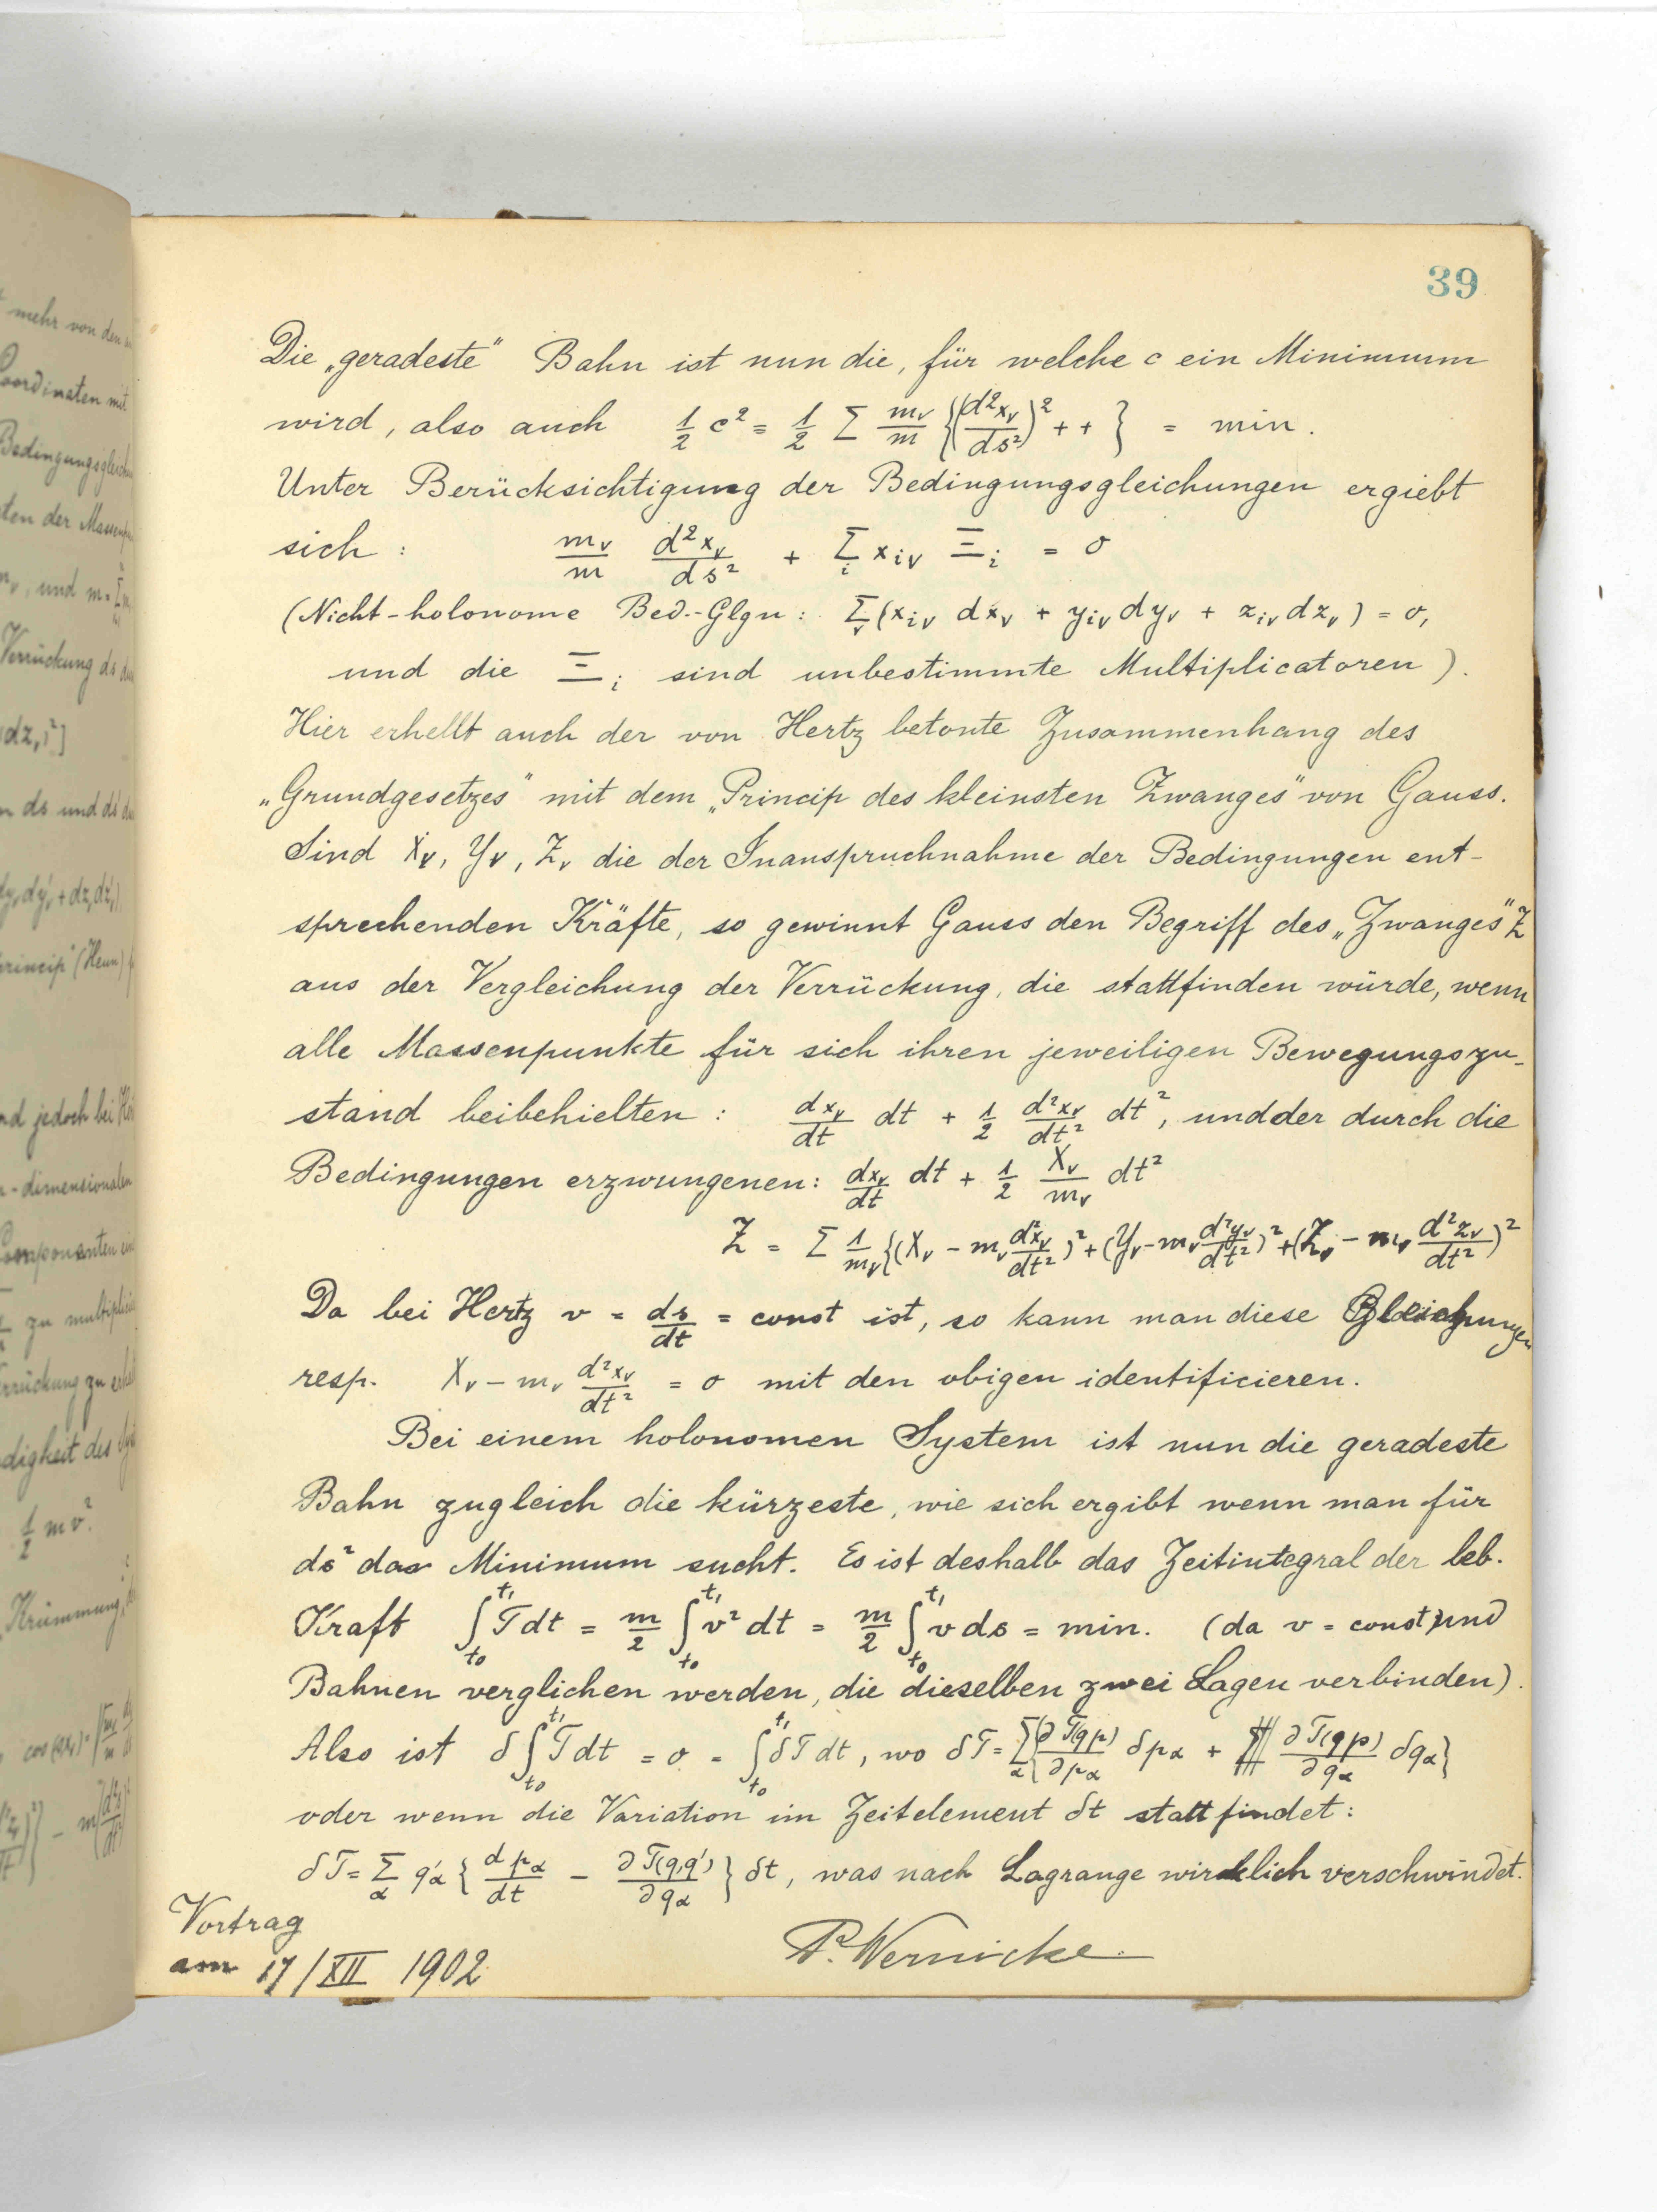 39
Die „geradeste" Bahn ist nun die, für welche c ein Minimum
wird, also auch ½ c² = ½ Σ m_ν/m {(d²x_ν/ds²)² + + } = min.
Unter Berücksichtigung der Bedingungsgleichungen ergiebt
sich : m_ν/m d²x_ν/ds² + Σ_i x_iν Ξ_i = 0
(Nicht-holonome Bed.-Glgn: Σ_ν (x_iν dx_ν + y_iν dy_ν + z_iν dz_ν) = 0,
und die Ξ_i sind unbestimmte Multiplicatoren).
Hier erhellt auch der von Hertz betonte Zusammenhang des
„Grundgesetzes" mit dem „Princip des kleinsten Zwanges" von Gauss.
Sind X_ν, Y_ν, Z_ν die der Inanspruchnahme der Bedingungen ent-
sprechenden Kräfte, so gewinnt Gauss den Begriff des „Zwanges" Z
aus der Vergleichung der Verrückung, die stattfinden würde, wenn
alle Massenpunkte für sich ihren jeweiligen Bewegungszu-
stand beibehielten : dx_ν/dt dt + ½ d²x_ν/dt² dt², und der durch die
Bedingungen erzwungenen: dx_ν/dt dt + ½ X_ν/m_ν dt²
Z = Σ 1/m_ν {(X_ν - m_ν d²x_ν/dt²)² + (Y_ν - m_ν d²y_ν/dt²)² + (Z_ν - m_ν d²z_ν/dt²)²
Da bei Hertz v = ds/dt = const ist, so kann man diese Gleichungen
resp. X_ν - m_ν d²x_ν/dt² = 0 mit den obigen identificieren.
Bei einem holonomen System ist nun die geradeste
Bahn zugleich die kürzeste, wie sich ergibt wenn man für
ds² das Minimum sucht. Es ist deshalb das Zeitintegral der leb.
Kraft ∫_{t₀}^{t₁} T dt = m/2 ∫_{t₀}^{t₁} v² dt = m/2 ∫_{t₀}^{t₁} v ds = min. (da v = const) und
Bahnen verglichen werden, die dieselben zwei Lagen verbinden).
Also ist δ∫_{t₀}^{t₁} T dt = 0 = ∫_{t₀}^{t₁} δT dt, wo δT = Σ_α {∂T(qp)/∂p_α δp_α + ∂T(qp)/∂q_α δq_α}
oder wenn die Variation im Zeitelement δt stattfindet:
δT = Σ_α q'_α { dp_α/dt - ∂T(q,q')/∂q_α } δt, was nach Lagrange wirklich verschwindet.
Vortrag
am 17/XII 1902
P. Wernicke